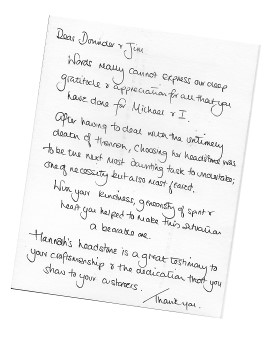 Dear Dominder & Jim
Words really cannot express our deep
gratitude & appreciation for all that you
have done for Michael & I.
After having to deal with the untimely
death of Hannah, choosing her headstone was
to be the next most daunting task to undertake;
one of necessity but also most feared.
With your kindness, generosity of spirit &
heart you helped to make this situation
a bearable one.
Hannah's headstone is a great testimony to
your craftsmanship & the dedication that you
show to your customers.
Thank you.